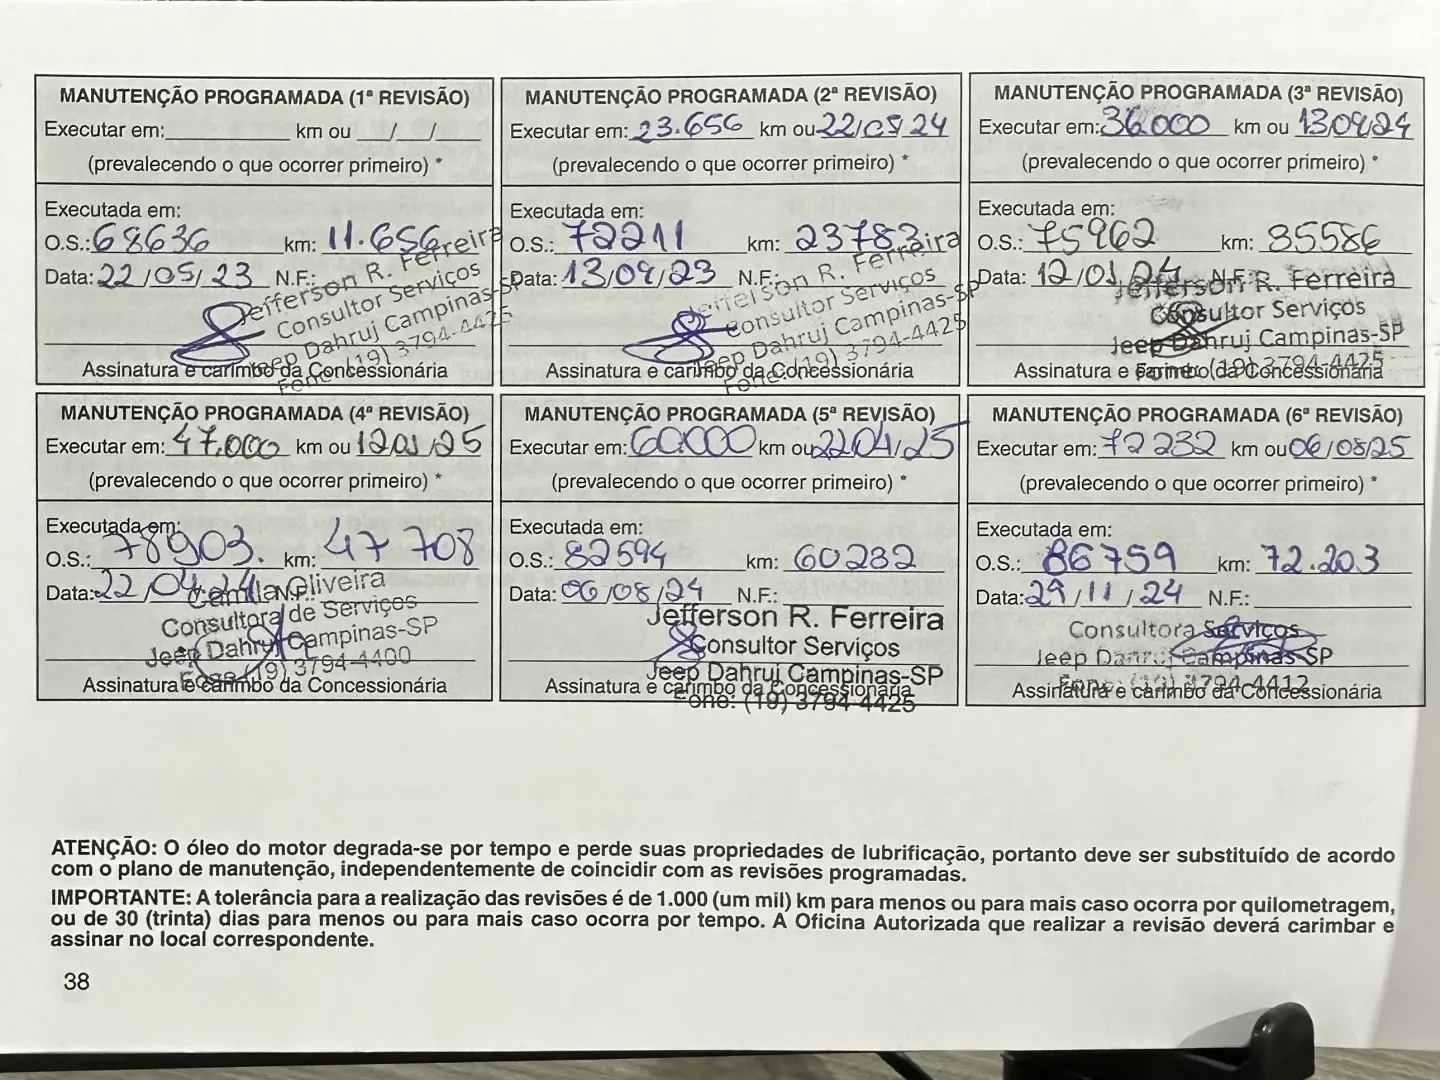 MANUTENÇÃO PROGRAMADA (1ª REVISÃO)
Executar em: km ou / /
(prevalecendo o que ocorrer primeiro) *
Executada em:
O.S.: 68636 km: 11.656
Data: 22/05/23 N.F.:
Jefferson R. Ferreira
Consultor Serviços
Jeep Dahruj Campinas-SP
Fone: (19) 3794-4425
Assinatura e carimbo da Concessionária
MANUTENÇÃO PROGRAMADA (2ª REVISÃO)
Executar em: 23.656 km ou 22/05/24
(prevalecendo o que ocorrer primeiro) *
Executada em:
O.S.: 72211 km: 23783
Data: 13/09/23 N.F.:
Jefferson R. Ferreira
Consultor Serviços
Jeep Dahruj Campinas-SP
Fone: (19) 3794-4425
Assinatura e carimbo da Concessionária
MANUTENÇÃO PROGRAMADA (3ª REVISÃO)
Executar em: 36000 km ou 13/09/24
(prevalecendo o que ocorrer primeiro) *
Executada em:
O.S.: 75962 km: 35586
Data: 12/01/24 N.F.:
Jefferson R. Ferreira
Consultor Serviços
Jeep Dahruj Campinas-SP
Fone: (19) 3794-4425
Assinatura e carimbo da Concessionária
MANUTENÇÃO PROGRAMADA (4ª REVISÃO)
Executar em: 47.000 km ou 12/01/25
(prevalecendo o que ocorrer primeiro) *
Executada em:
O.S.: 78903. km: 47 708
Data: 22/04/24 N.F.:
Camila Oliveira
Consultora de Serviços
Jeep Dahruj Campinas-SP
Fone (19) 3794-4400
Assinatura e carimbo da Concessionária
MANUTENÇÃO PROGRAMADA (5ª REVISÃO)
Executar em: 60.000 km ou 22/04/25
(prevalecendo o que ocorrer primeiro) *
Executada em:
O.S.: 82594 km: 60232
Data: 06/08/24 N.F.:
Jefferson R. Ferreira
Consultor Serviços
Jeep Dahruj Campinas-SP
Fone: (19) 3794-4425
Assinatura e carimbo da Concessionária
MANUTENÇÃO PROGRAMADA (6ª REVISÃO)
Executar em: 72 232 km ou 06/08/25
(prevalecendo o que ocorrer primeiro) *
Executada em:
O.S.: 86759 km: 72.203
Data: 29/11/24 N.F.:
Consultora Serviços
Jeep Dahruj Campinas-SP
Fone: (19) 3794-4412
Assinatura e carimbo da Concessionária
ATENÇÃO: O óleo do motor degrada-se por tempo e perde suas propriedades de lubrificação, portanto deve ser substituído de acordo
com o plano de manutenção, independentemente de coincidir com as revisões programadas.
IMPORTANTE: A tolerância para a realização das revisões é de 1.000 (um mil) km para menos ou para mais caso ocorra por quilometragem,
ou de 30 (trinta) dias para menos ou para mais caso ocorra por tempo. A Oficina Autorizada que realizar a revisão deverá carimbar e
assinar no local correspondente.
38